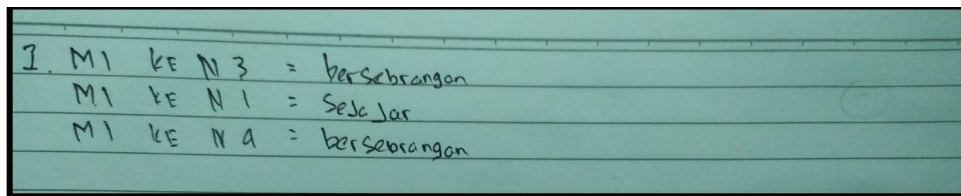 1. M1 KE N3 = bersebrangan
M1 KE N1 = Sejajar
M1 KE N4 = bersebrangan